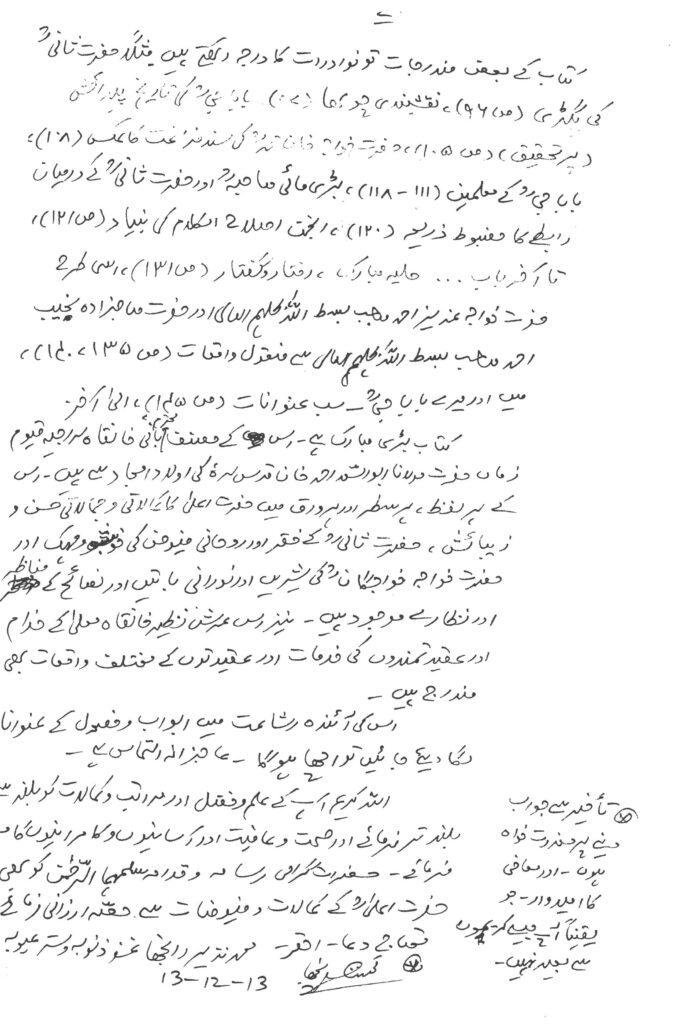 کتاب کے بعض مندرجات تو نوادرات کا درجہ رکھتے ہیں مثلاً حضرت ثانیؒ
کی پگڑی (ص ۹۶)، نقشبندی چوغا (۱۰۲)، بابا جیؒ کی تاریخ پیدائش
(پر تحقیق)، (ص ۱۰۵)، حضرت خواجہ خان محمدؒ کی سند فراغت کا عکس (۱۰۸)،
بابا جیؒ کے معلمین (۱۱۱ - ۱۱۸)، بڑی مائی صاحبہؒ اور حضرت ثانیؒ کے درمیان
رابطے کا مضبوط ذریعہ (۱۲۰)، انجمن اصلاح الکلام کی بنیاد (ص ۱۲۱)،
تا آخر باب ... حلیہ مبارک، رفتار و گفتار (ص ۱۳۱)، اسی طرح
حضرت خواجہ عزیز احمد صاحب بسط اللہ ظلہم العالی اور حضرت صاحبزادہ نجیب
احمد صاحب بسط اللہ ظلہم العالی سے منقول واقعات (ص ۱۳۵، ۱۴۰)،
میں اور میرے بابا جیؒ - سب عنوانات (ص ۱۴۵)، الیٰ آخر۔
کتاب بڑی مبارک ہے۔ اس کے مصنف محترم بانی خانقاہ سراجیہ قیوم
زماں حضرت مولانا ابوالسعد احمد خان قدس سرہٗ کی اولاد امجاد سے ہیں۔ اس
کے ہر لفظ، ہر سطر اور ہر ورق میں حضرت اعلیٰ کا کمالاتی و جمالاتی حسن و
زیبائش، حضرت ثانیؒ کے فقر اور روحانی فیوض کی خوشبو و مہک اور
حضرت خواجہ خواجگانؒ کی شیریں اور نورانی باتیں اور نصائح کے مناظر
اور نظارے موجود ہیں۔ نیز اس عرش نظیر خانقاہ معلیٰ کے خدام
اور عقیدتمندوں کی خدمات اور عقیدتوں کے مختلف واقعات بھی
مندرج ہیں۔
اس کی آئندہ اشاعت میں ابواب و فصول کے عنوانا
لگا دیئے جائیں تو اچھا ہوگا۔ عاجزانہ التماس ہے۔
اللہ کریم آپ کے علم و فضل اور مراتب و کمالات کو بلند سے
بلند تر فرمائے اور صحت و عافیت اور آسانیوں و کامرانیوں
فرمائے۔ حضرت گرامی سلمہما الرحمٰن کو بھی
حضرت اعلیٰؒ کے کمالات و فیوضات سے حصّہ ارزانی فرمائے
محتاج دعا - احقر - محمد نذیر رانجھا غفر ذنوبہ وستر عیوبہ
13-12-13
تاخیر سے جواب
دینے پر معذرت خواہ
ہوں - اور معافی
کا امیدوار - جو
یقیناً آپ جیسے کریموں
سے بعید نہیں -